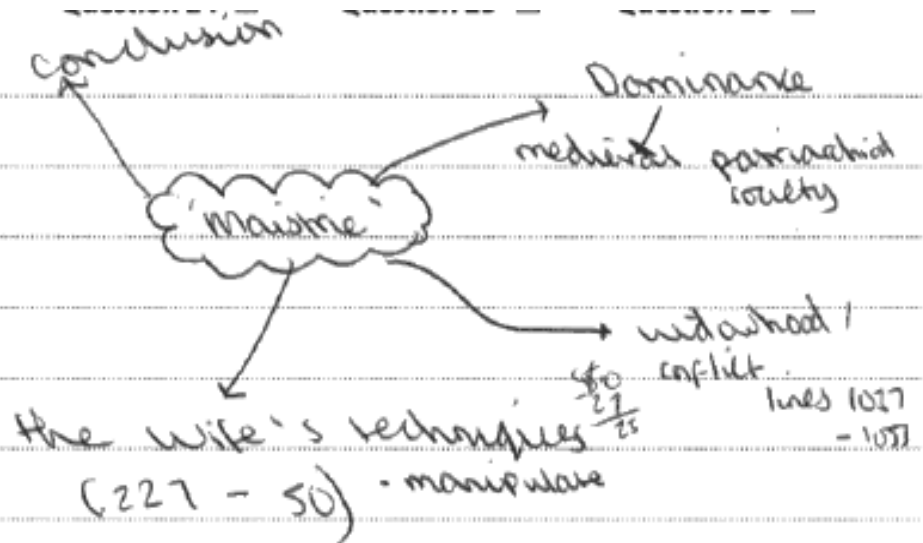 conclusion
Dominance
medieval patriarchial
society
'Maistrie'
conflict
lines 1037
the wife's techniques
(227 - 50) • manipulate